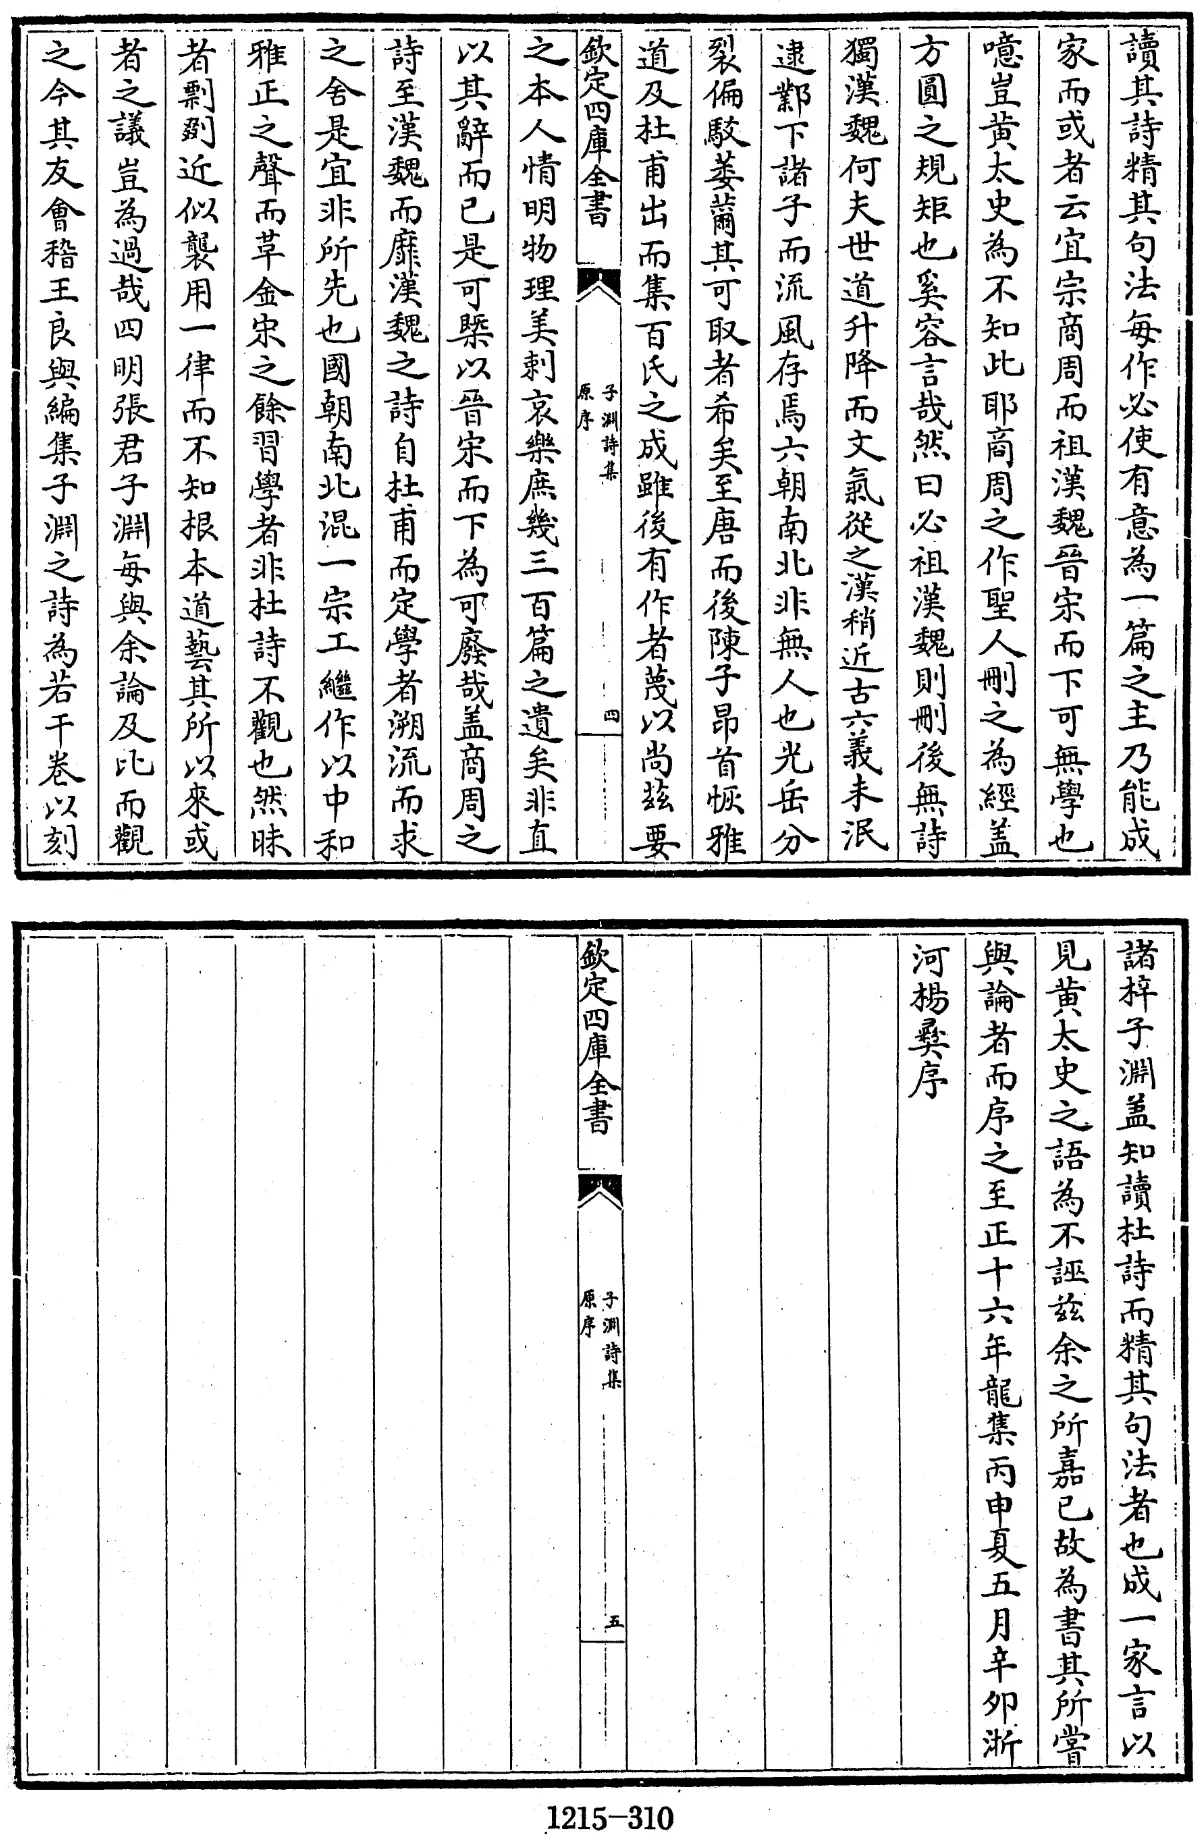 讀其詩精其句法每作必使有意為一篇之主乃能成
家而或者云宜宗商周而祖漢魏晉宋而下可無學也
噫豈黃太史為不知此耶商周之作聖人刪之為經蓋
方圓之規矩也奚容言哉然曰必祖漢魏則刪後無詩
獨漢魏何夫世道升降而文氣從之漢稍近古六義未泯
逮鄴下諸子而流風存焉六朝南北非無人也光岳分
裂偏駁萎薾其可取者希矣至唐而後陳子昂首恢雅
道及杜甫出而集百氏之成雖後有作者蔑以尚茲要
欽定四庫全書
子淵詩集
原序
四
之本人情明物理美刺哀樂庶幾三百篇之遺矣非直
以其辭而已是可槩以晉宋而下為可廢哉蓋商周之
詩至漢魏而靡漢魏之詩自杜甫而定學者溯流而求
之舍是宜非所先也國朝南北混一宗工繼作以中和
雅正之聲而革金宋之餘習學者非杜詩不觀也然昧
者剽剟近似襲用一律而不知根本道藝其所以來或
者之議豈為過哉四明張君子淵每與余論及此而觀
之今其友會稽王良與編集子淵之詩為若干卷以刻
諸梓子淵蓋知讀杜詩而精其句法者也成一家言以
見黃太史之語為不誣茲余之所嘉已故為書其所嘗
與論者而序之至正十六年龍集丙申夏五月辛卯浙
河楊彝序
欽定四庫全書
子淵詩集
原序
五
1215-310